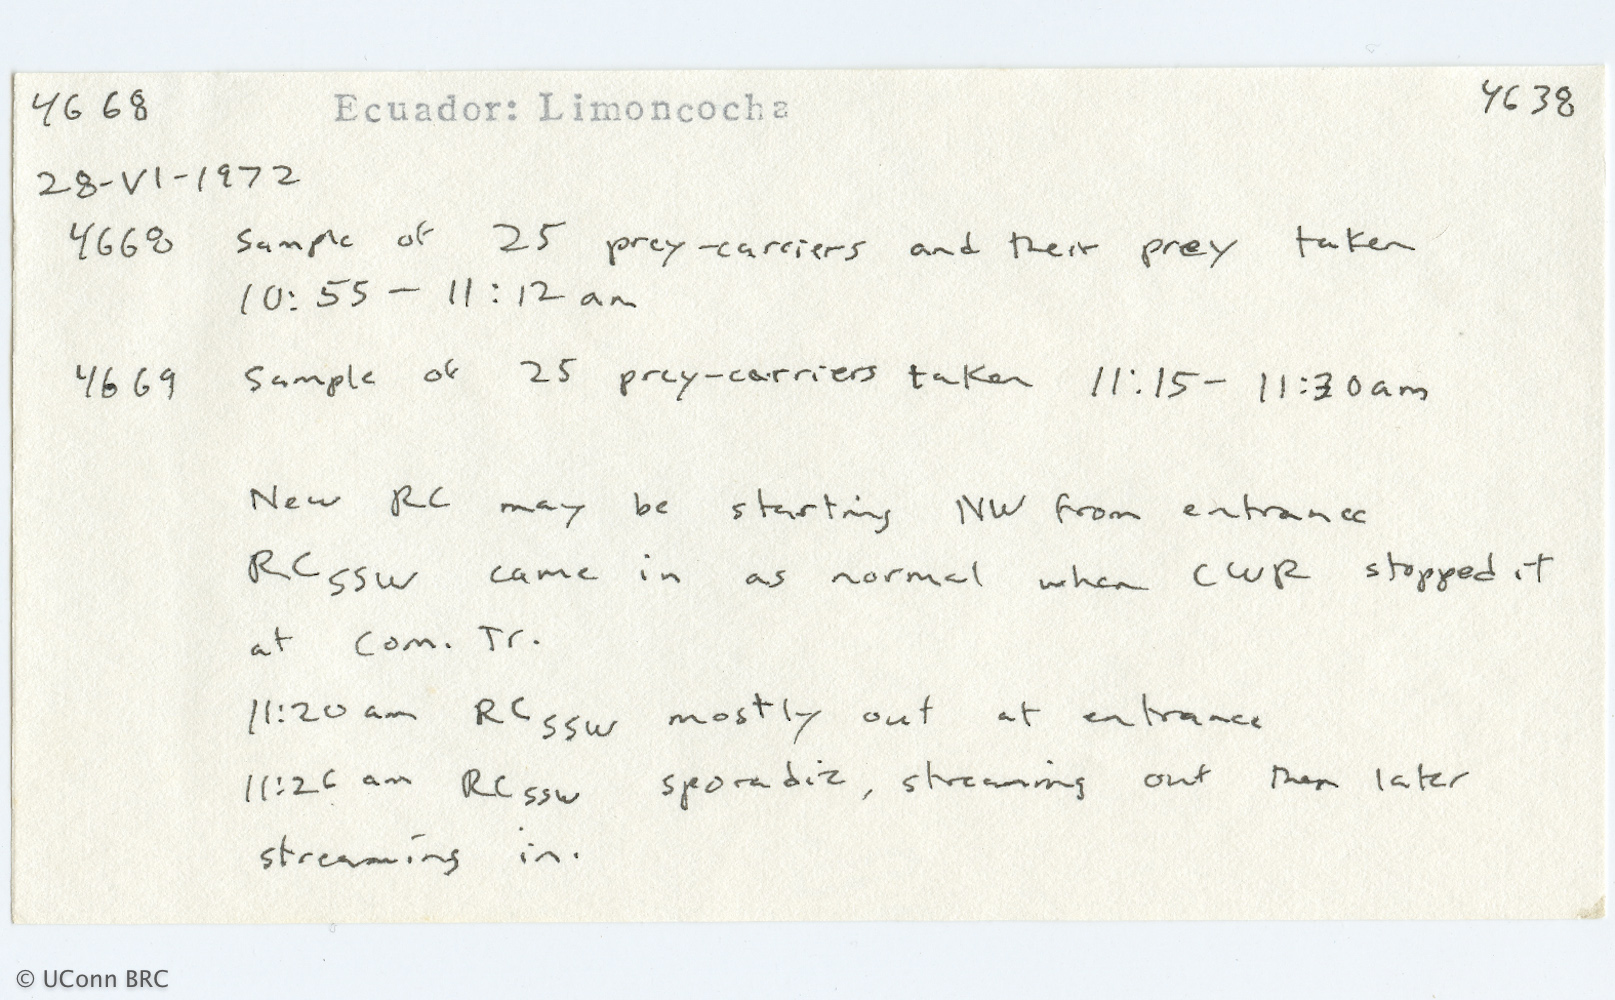 4668 Ecuador: Limoncocha 4638
28-VI-1972
4668 Sample of 25 prey-carriers and their prey taken
10:55 - 11:12 am
4669 Sample of 25 prey-carriers taken 11:15 - 11:30 am
New RC may be starting NW from entrance
RC SSW came in as normal when CWR stopped it
at Com. Tr.
11:20 am RC SSW mostly out at entrance
11:26 am RC SSW sporadic, streaming out then later
streaming in.
© UConn BRC